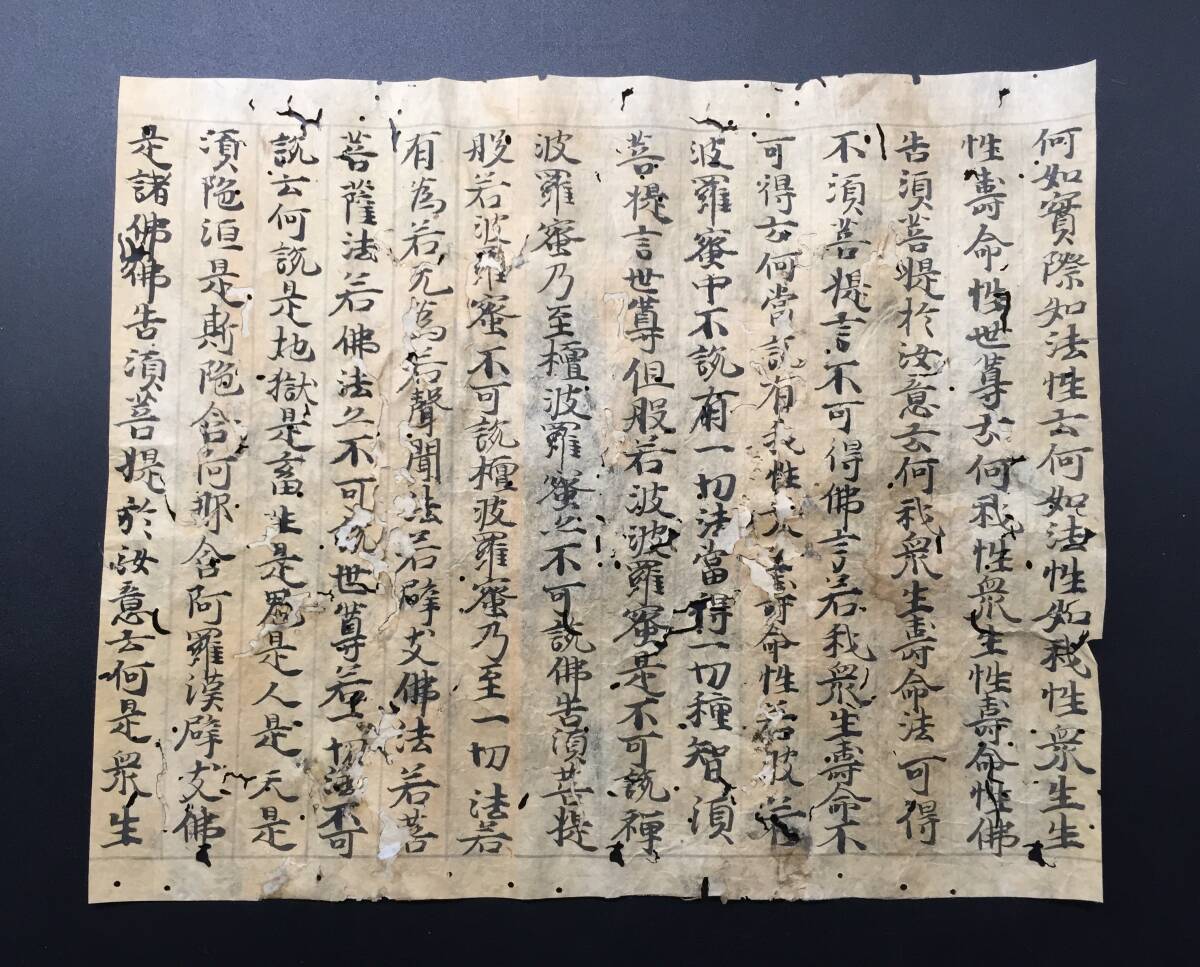 何如實際知法性云何如法性知我性衆生生
性壽命性世尊云何我性衆生性壽命性佛
告須菩提於汝意云何我衆生壽命法可得
不須菩提言不可得佛言若我衆生壽命不
可得云何當說有我性衆生性壽命性若般若
波羅蜜中不說有一切法當得一切種智須
菩提言世尊但般若波波羅蜜是不可說禪
波羅蜜乃至檀波羅蜜亦不可說佛告須菩提
般若波羅蜜不可說檀波羅蜜乃至一切法若
有為若无為若聲聞法若辟支佛法若菩
菩薩法若佛法亦不可說世尊若一切法不可
說云何說是地獄是畜生是是人是天是
須陁洹是斯陁含阿那含阿羅漢辟支佛
是諸佛佛告須菩提於汝意云何是衆生